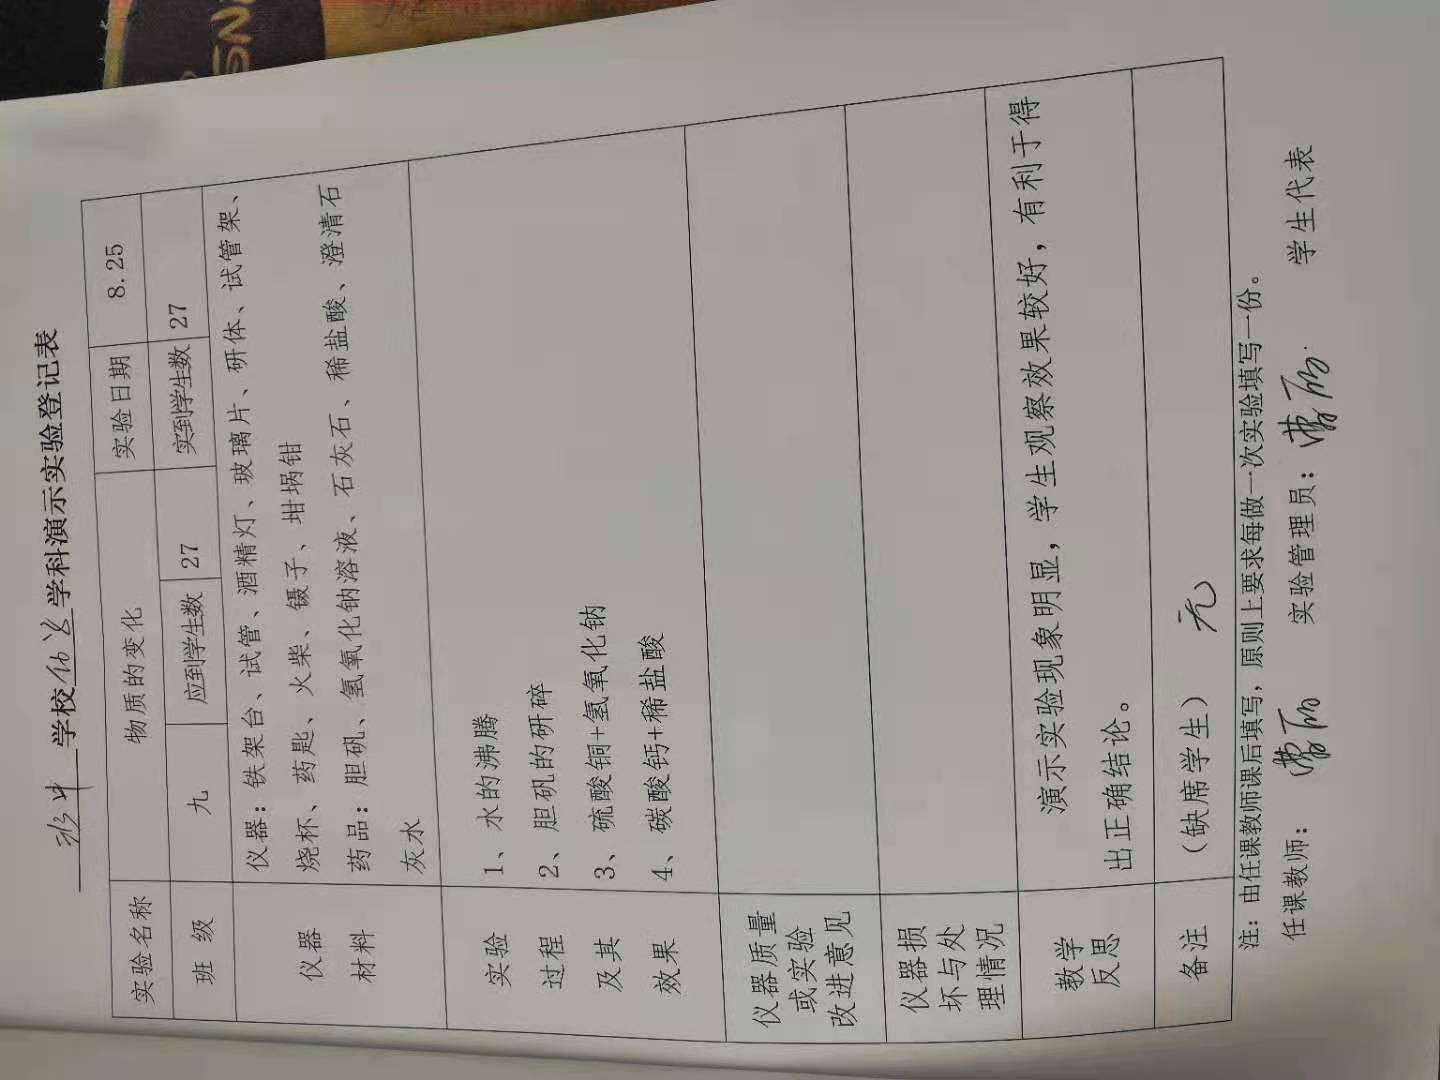 SNU
学校化学学科演示实验登记表
实验名称 物质的变化 实验日期 8.25
班 级 九 应到学生数 27 实到学生数 27
仪器 材料
仪器：铁架台、试管、酒精灯、玻璃片、研体、试管架、
烧杯、药匙、火柴、镊子、坩埚钳
药品：胆矾、氢氧化钠溶液、石灰石、稀盐酸、澄清石
灰水
实验 过程 及其 效果
1、水的沸腾
2、胆矾的研碎
3、硫酸铜+氢氧化钠
4、碳酸钙+稀盐酸
仪器质量
或实验
改进意见
仪器损
坏与处
理情况
教学 反思
演示实验现象明显，学生观察效果较好，有利于得
出正确结论。
备注 （缺席学生） 无
注：由任课教师课后填写，原则上要求每做一次实验填写一份。
任课教师： 实验管理员： 学生代表